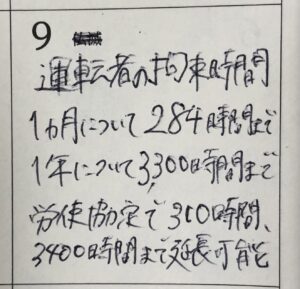 9
運転者の拘束時間
1ヵ月について284時間まで
1年について3,300時間まで
労使協定で310時間、
3400時間まで延長可能